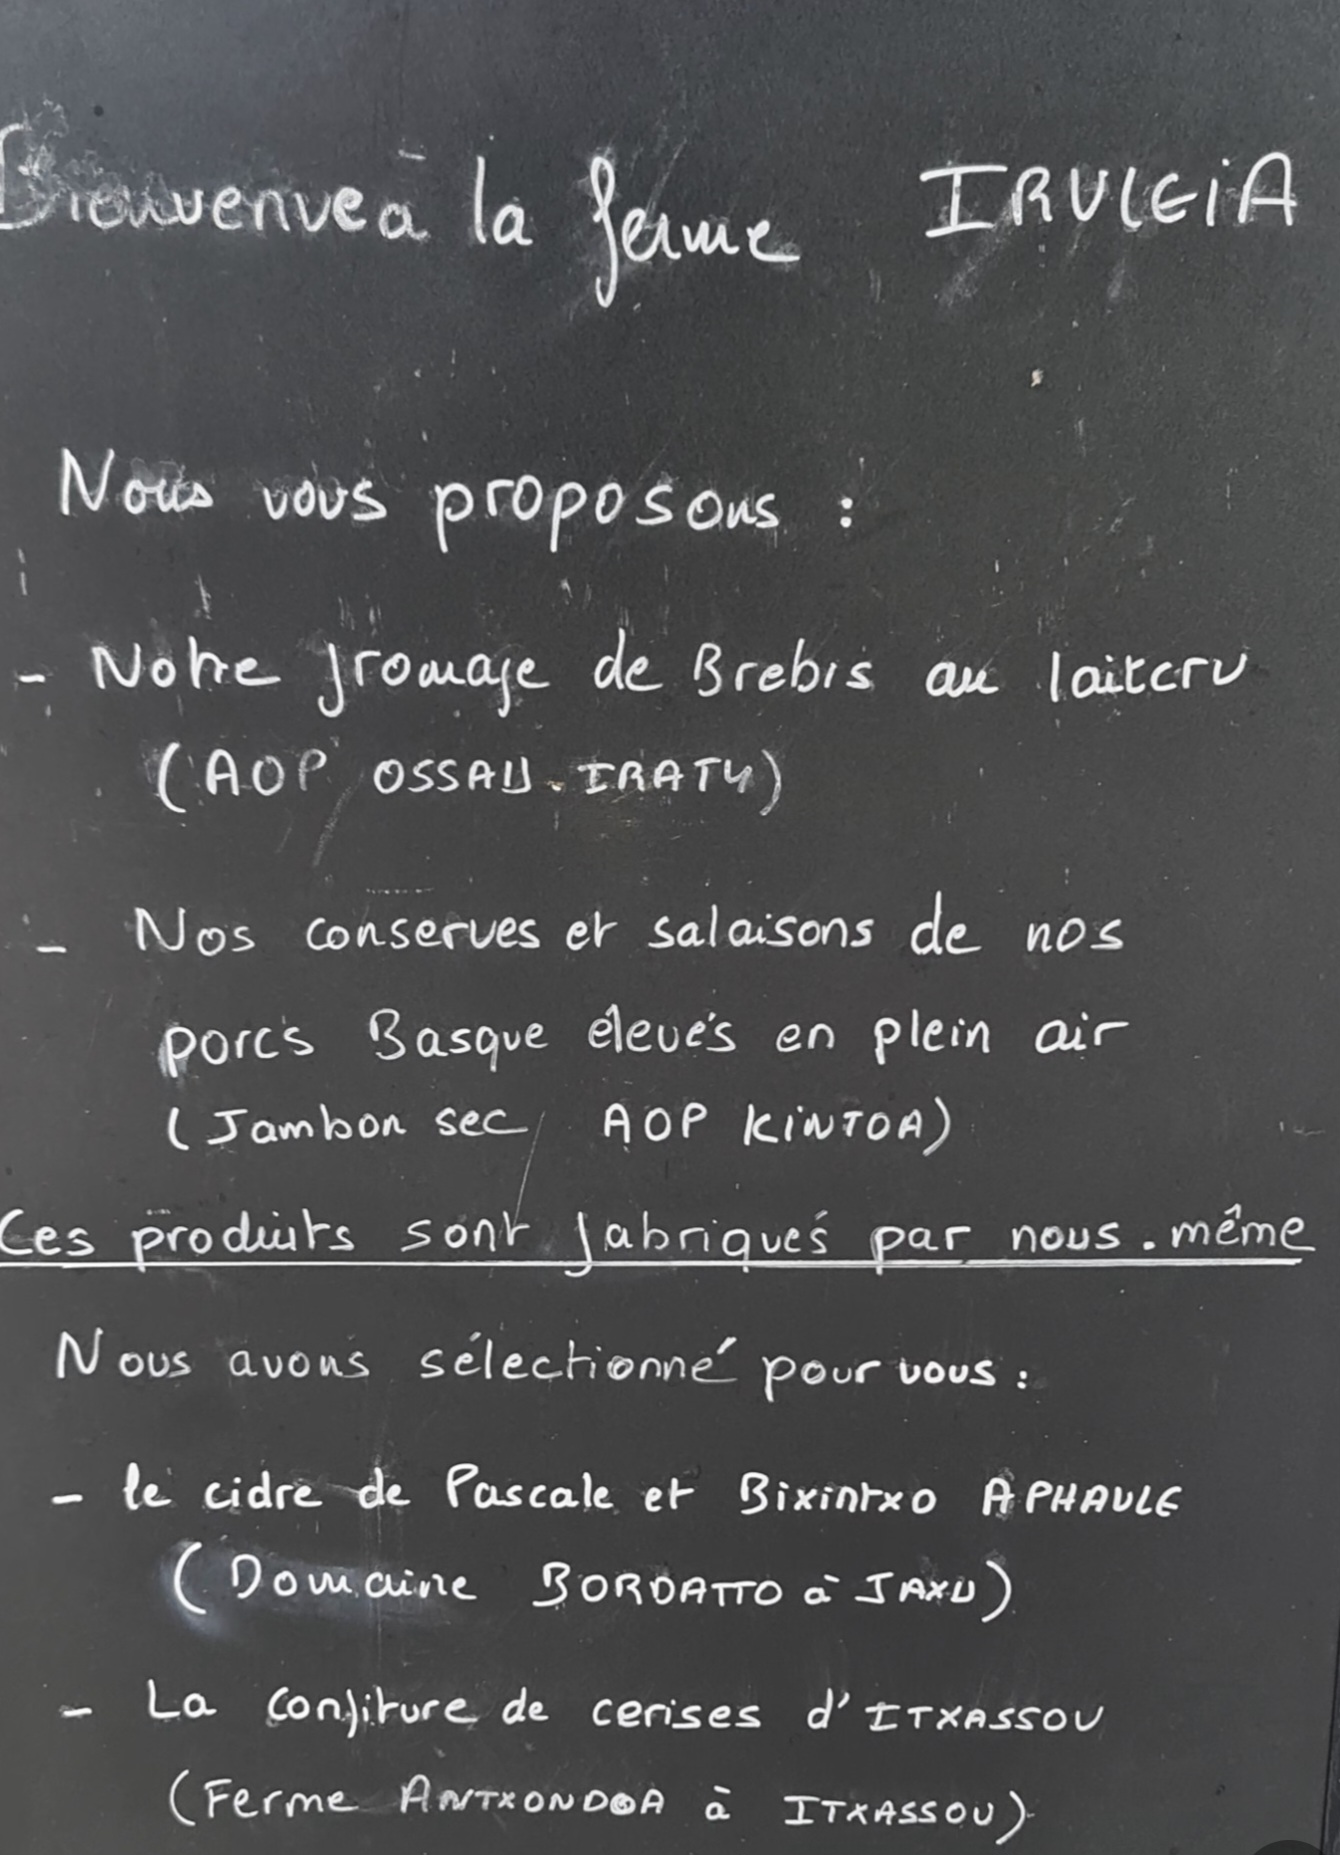 Bienvenue à la ferme IRULEiA
Nous vous proposons :
- Notre fromage de Brebis au lait cru
(AOP OSSAU-IRATY)
- Nos conserves et salaisons de nos
porcs Basque élevés en plein air
(Jambon sec AOP KiNTOA)
Ces produits sont fabriqués par nous-même
Nous avons sélectionné pour vous :
- le cidre de Pascale et Bixintxo APHAULE
(Domaine BORDATTO à JAXU)
- La confiture de cerises d'ITXASSOU
(Ferme ANTXONDOA à ITXASSOU)